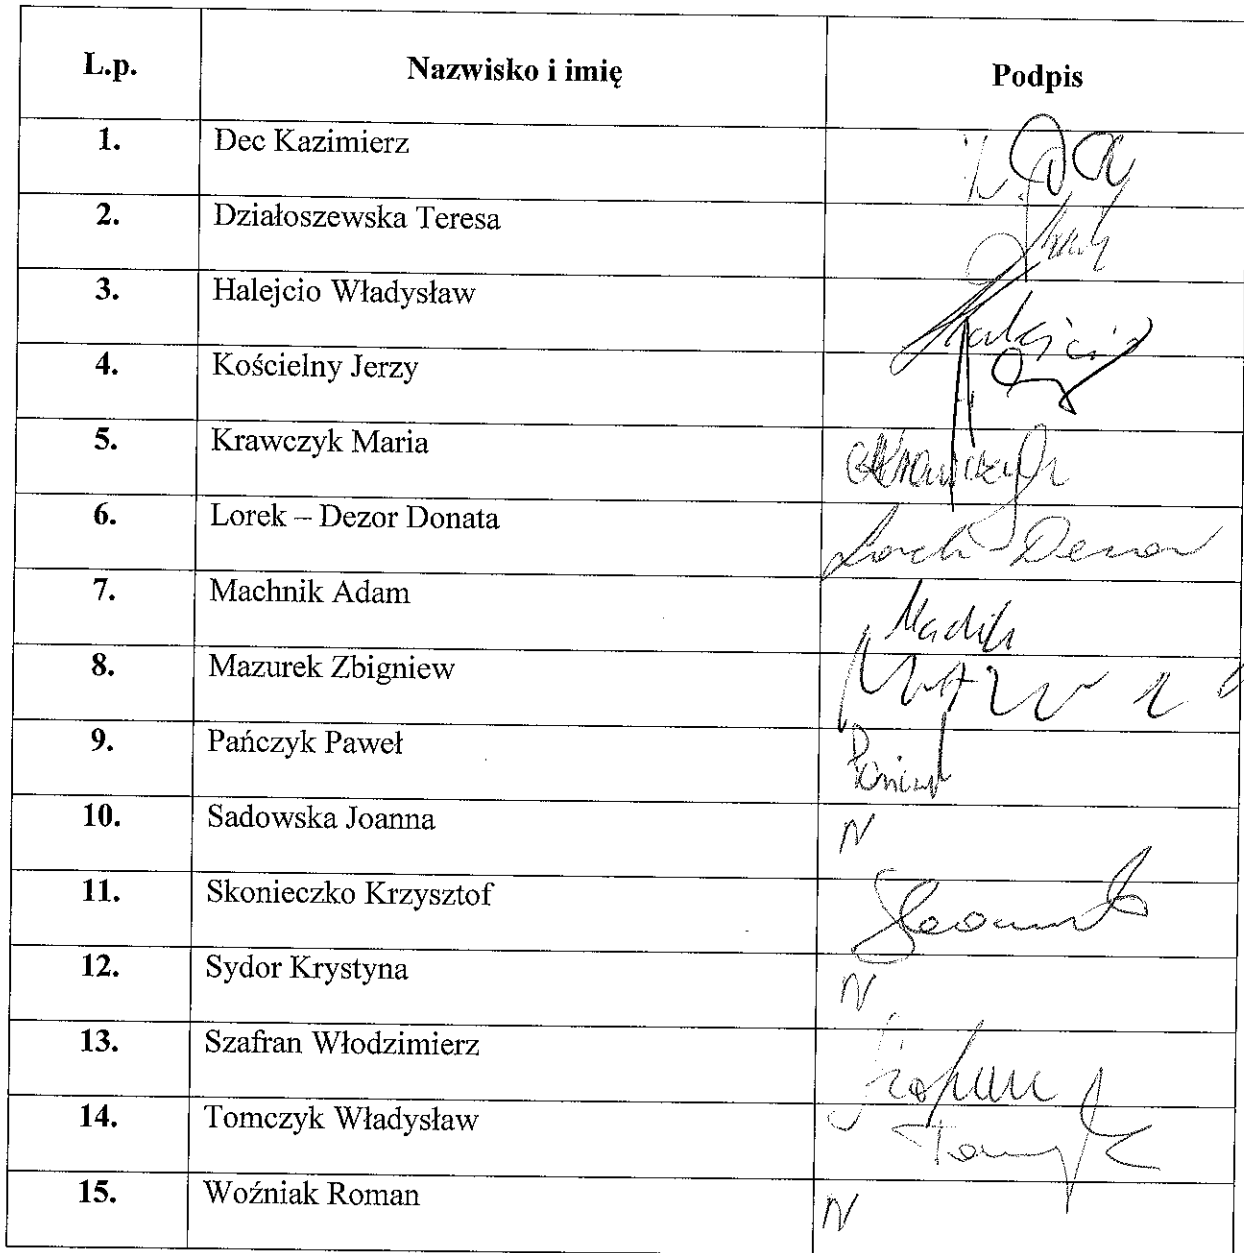 L.p. Nazwisko i imię Podpis
1. Dec Kazimierz
2. Działoszewska Teresa
3. Halejcio Władysław Halejcio
4. Kościelny Jerzy
5. Krawczyk Maria Krawczyk
6. Lorek – Dezor Donata Lorek Dezor
7. Machnik Adam
8. Mazurek Zbigniew
9. Pańczyk Paweł
10. Sadowska Joanna N
11. Skonieczko Krzysztof
12. Sydor Krystyna N
13. Szafran Włodzimierz
14. Tomczyk Władysław
15. Woźniak Roman N